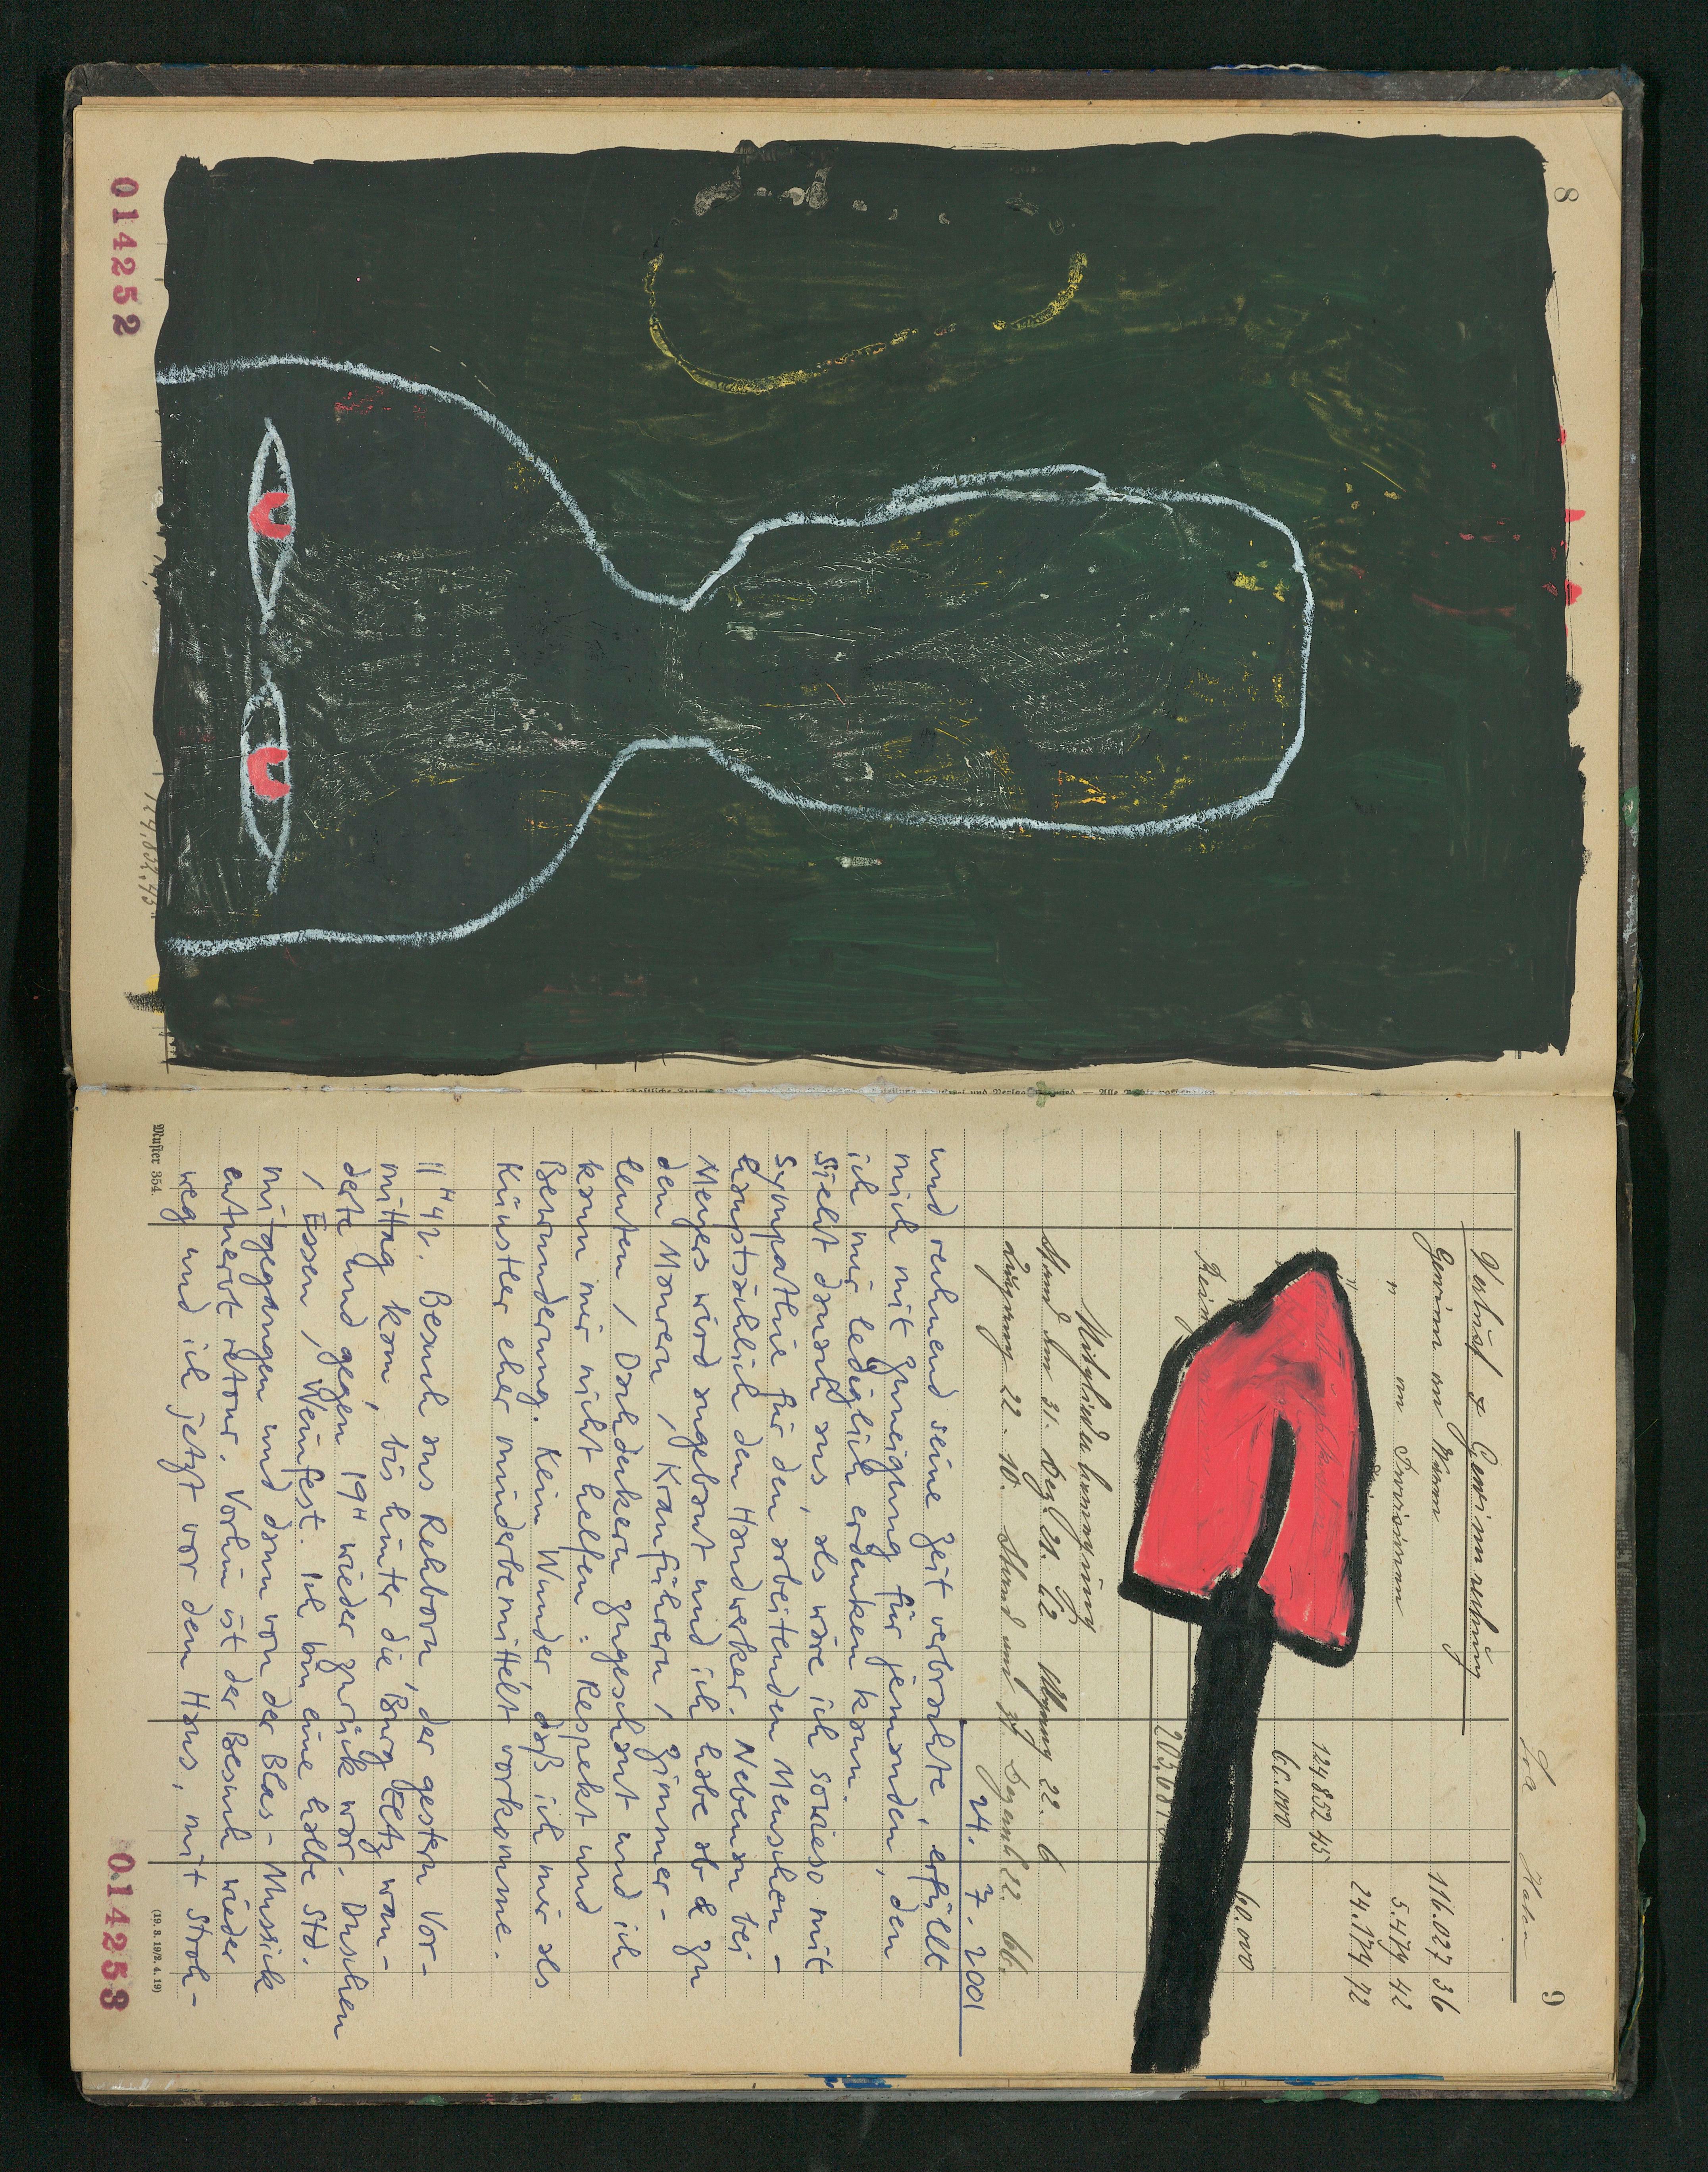 8
014252
124.852,45
9
Soll Haben
Verlust & Gewinnrechnung
Gewinn an Waren 116.027 36
" an Provisionen 5.479 42
24.174 72
124.852 45
60.000
60.000
203.081
Mitgliederbewegung
Stand am 31. Dez. 21. 62 Abgang 22. 6
Zugang 22. 10. Stand am 31. Dezemb 22. 66.
24. 7. 2001
und rechnend seine Zeit verbrachte, erfüllt
mich mit Zuneigung für jemanden, den
ich mir lediglich erdenken kann.
Sieht danach aus, als wäre ich sowieso mit
Sympathie für den arbeitenden Menschen –
hauptsächlich den Handwerker. Nebenan bei
Meyers wird angebaut und ich habe ab & zu
den Maurern / Kranführern / Zimmer-
leuten / Dachdeckern zugeschaut und ich
kann mir nicht helfen: Respekt und
Bewunderung. Kein Wunder, daß ich mir als
Künstler eher minderbemittelt vorkomme.
11 H 42. Besuch aus Rehborn, der gestern Vor-
mittag kam, bis hinter die Burg Eltz wan-
derte und gegen 19 H wieder zurück war. Duschen
/ Essen / Weinfest. Ich bin eine halbe Std.
mitgegangen und dann von der Blas-Mussick
entnervt retour. Vorhin ist der Besuch wieder
weg und ich jetzt vor dem Haus, mit Stroh-
Muster 354.
(19. 3. 19/2. 4. 19)
014253